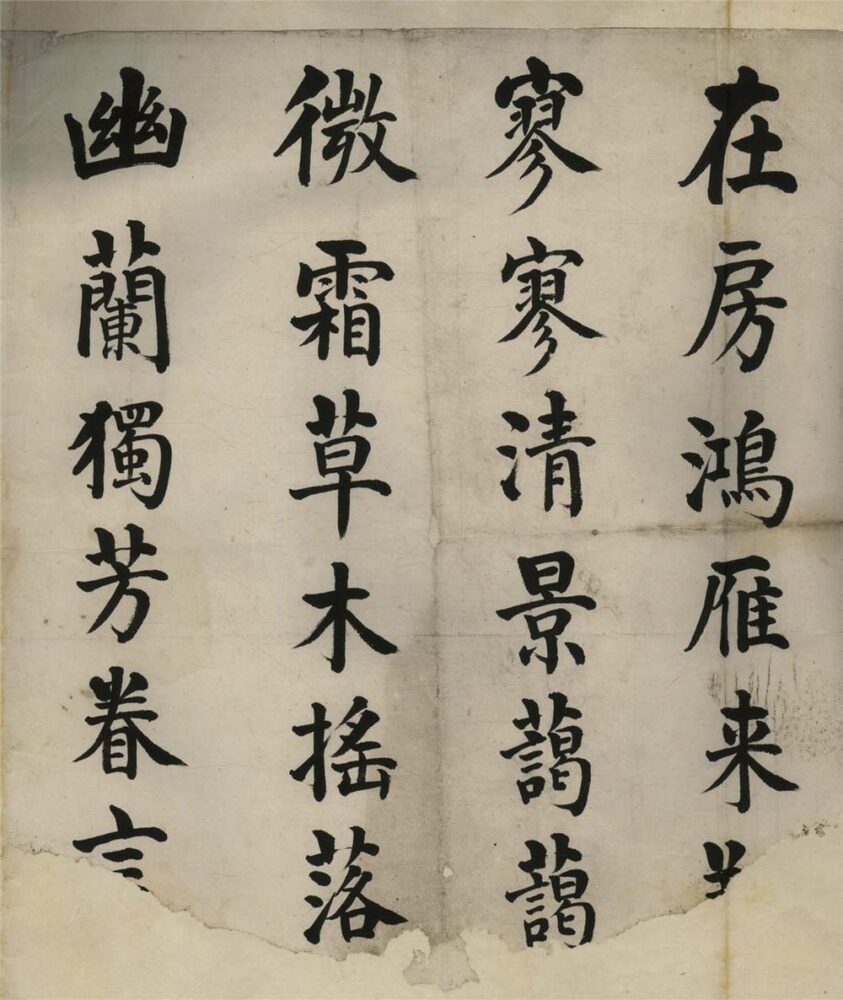 在房鴻雁来
寥寥清景藹藹
微霜草木搖落
幽蘭獨芳眷言